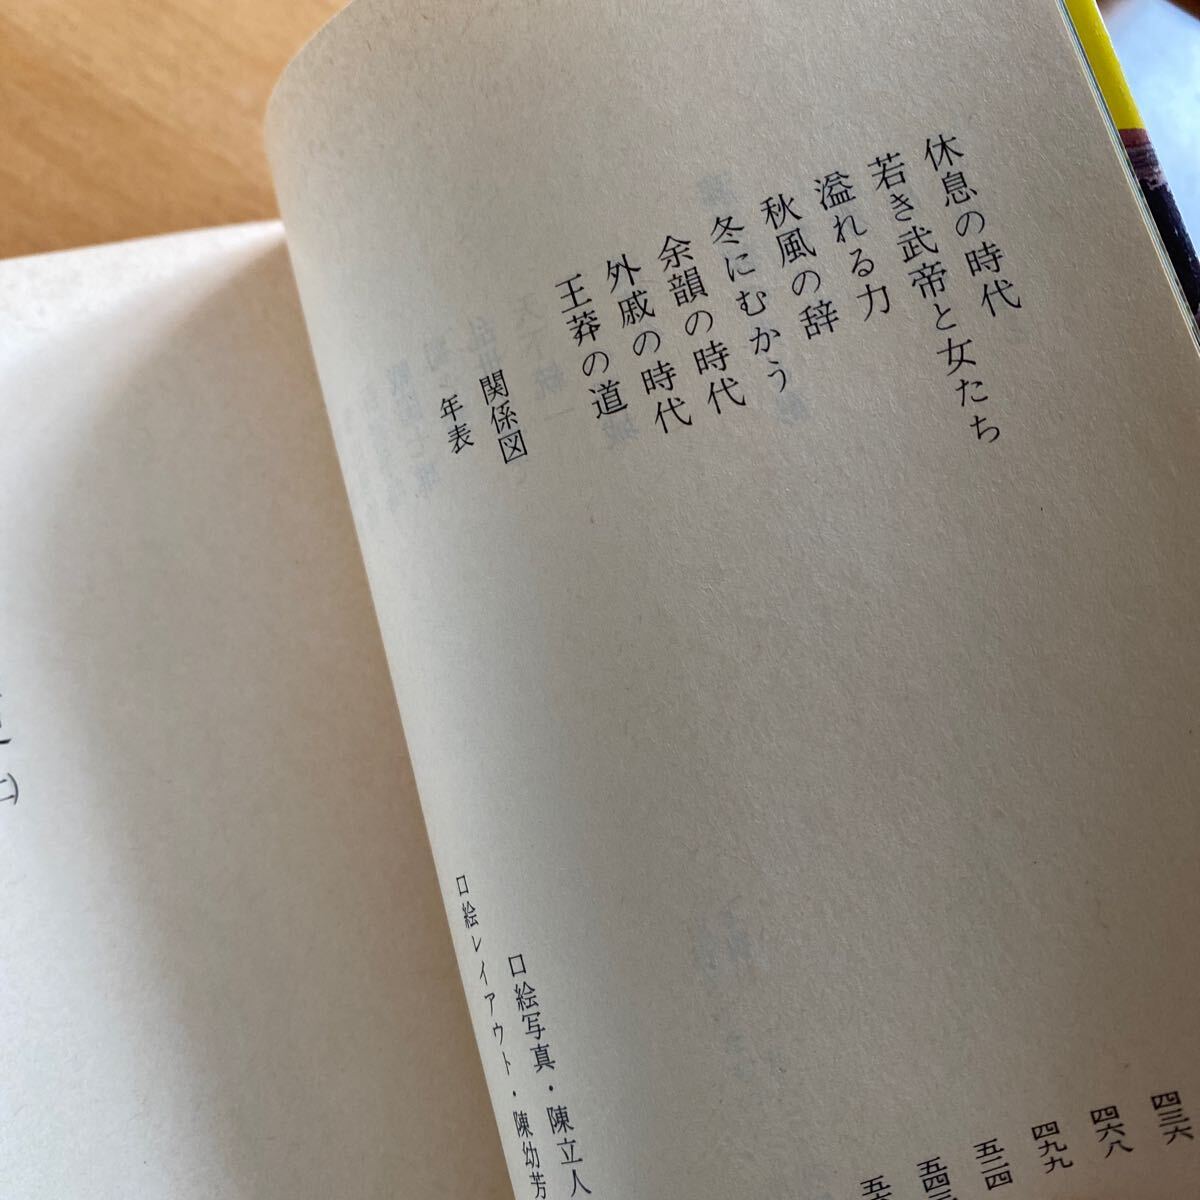 休息の時代
若き武帝と女たち
溢れる力
秋風の辞
冬にむかう
余韻の時代
外戚の時代
王莽の道
関係図
年表
四三六
四六八
四九九
五二四
口絵写真・陳立人
口絵レイアウト・陳幼芳